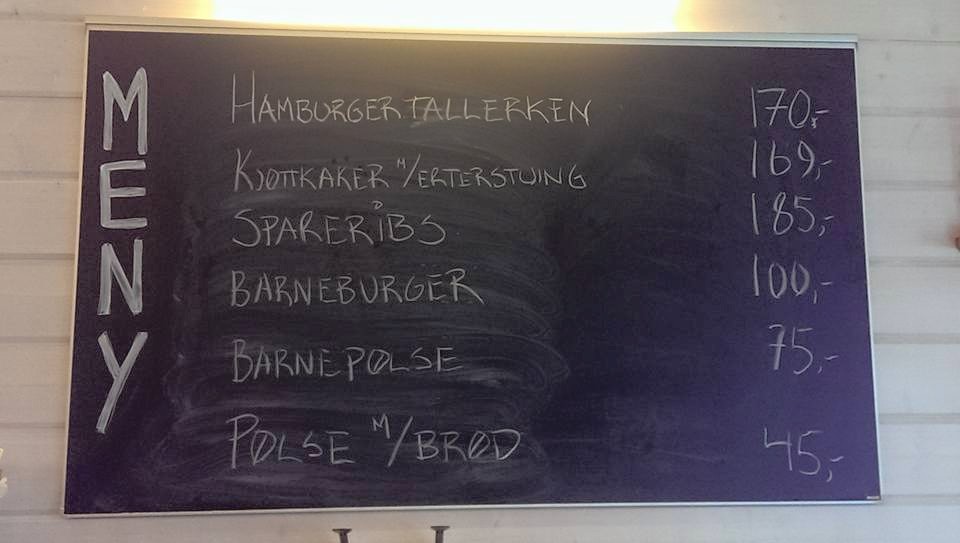 MENY
HAMBURGERTALLERKEN 170,-
KJØTTKAKER M/ERTERSTUING 169,-
SPARERIBS 185,-
BARNEBURGER 100,-
BARNEPØLSE 75,-
PØLSE M/BRØD 45,-